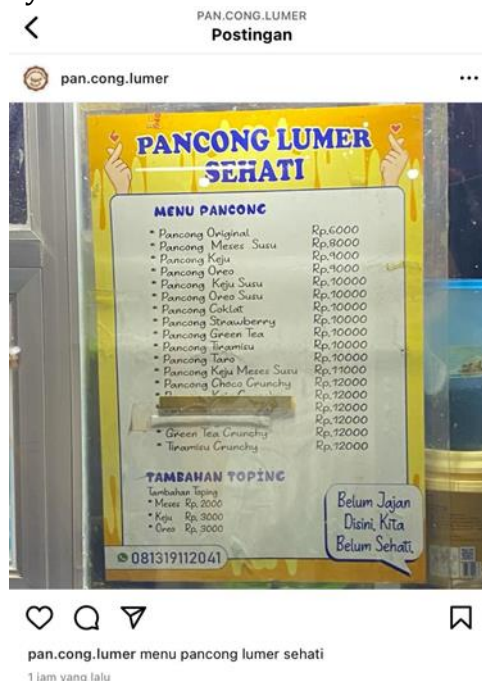 PAN.CONG.LUMER
Postingan
pan.cong.lumer
PANCONG LUMER
SEHATI
MENU PANCONG
* Pancong Original Rp.6000
* Pancong Meses Susu Rp.8000
* Pancong Keju Rp.9000
* Pancong Oreo Rp.9000
* Pancong Keju Susu Rp.10000
* Pancong Oreo Susu Rp.10000
* Pancong Coklat Rp.10000
* Pancong Strawberry Rp.10000
* Pancong Green Tea Rp.10000
* Pancong Tiramisu Rp.10000
* Pancong Taro Rp.10000
* Pancong Keju Meses Susu Rp.11000
* Pancong Choco Crunchy Rp.12000
Rp.12000
Rp.12000
Rp.12000
* Green Tea Crunchy Rp.12000
* Tiramisu Crunchy Rp.12000
TAMBAHAN TOPING
Tambahan Toping
* Meses Rp. 2000
* Keju Rp. 3000
* Oreo Rp. 3000
Belum Jajan
Disini, Kita
Belum Sehati.
081319112041
pan.cong.lumer menu pancong lumer sehati
1 jam yang lalu